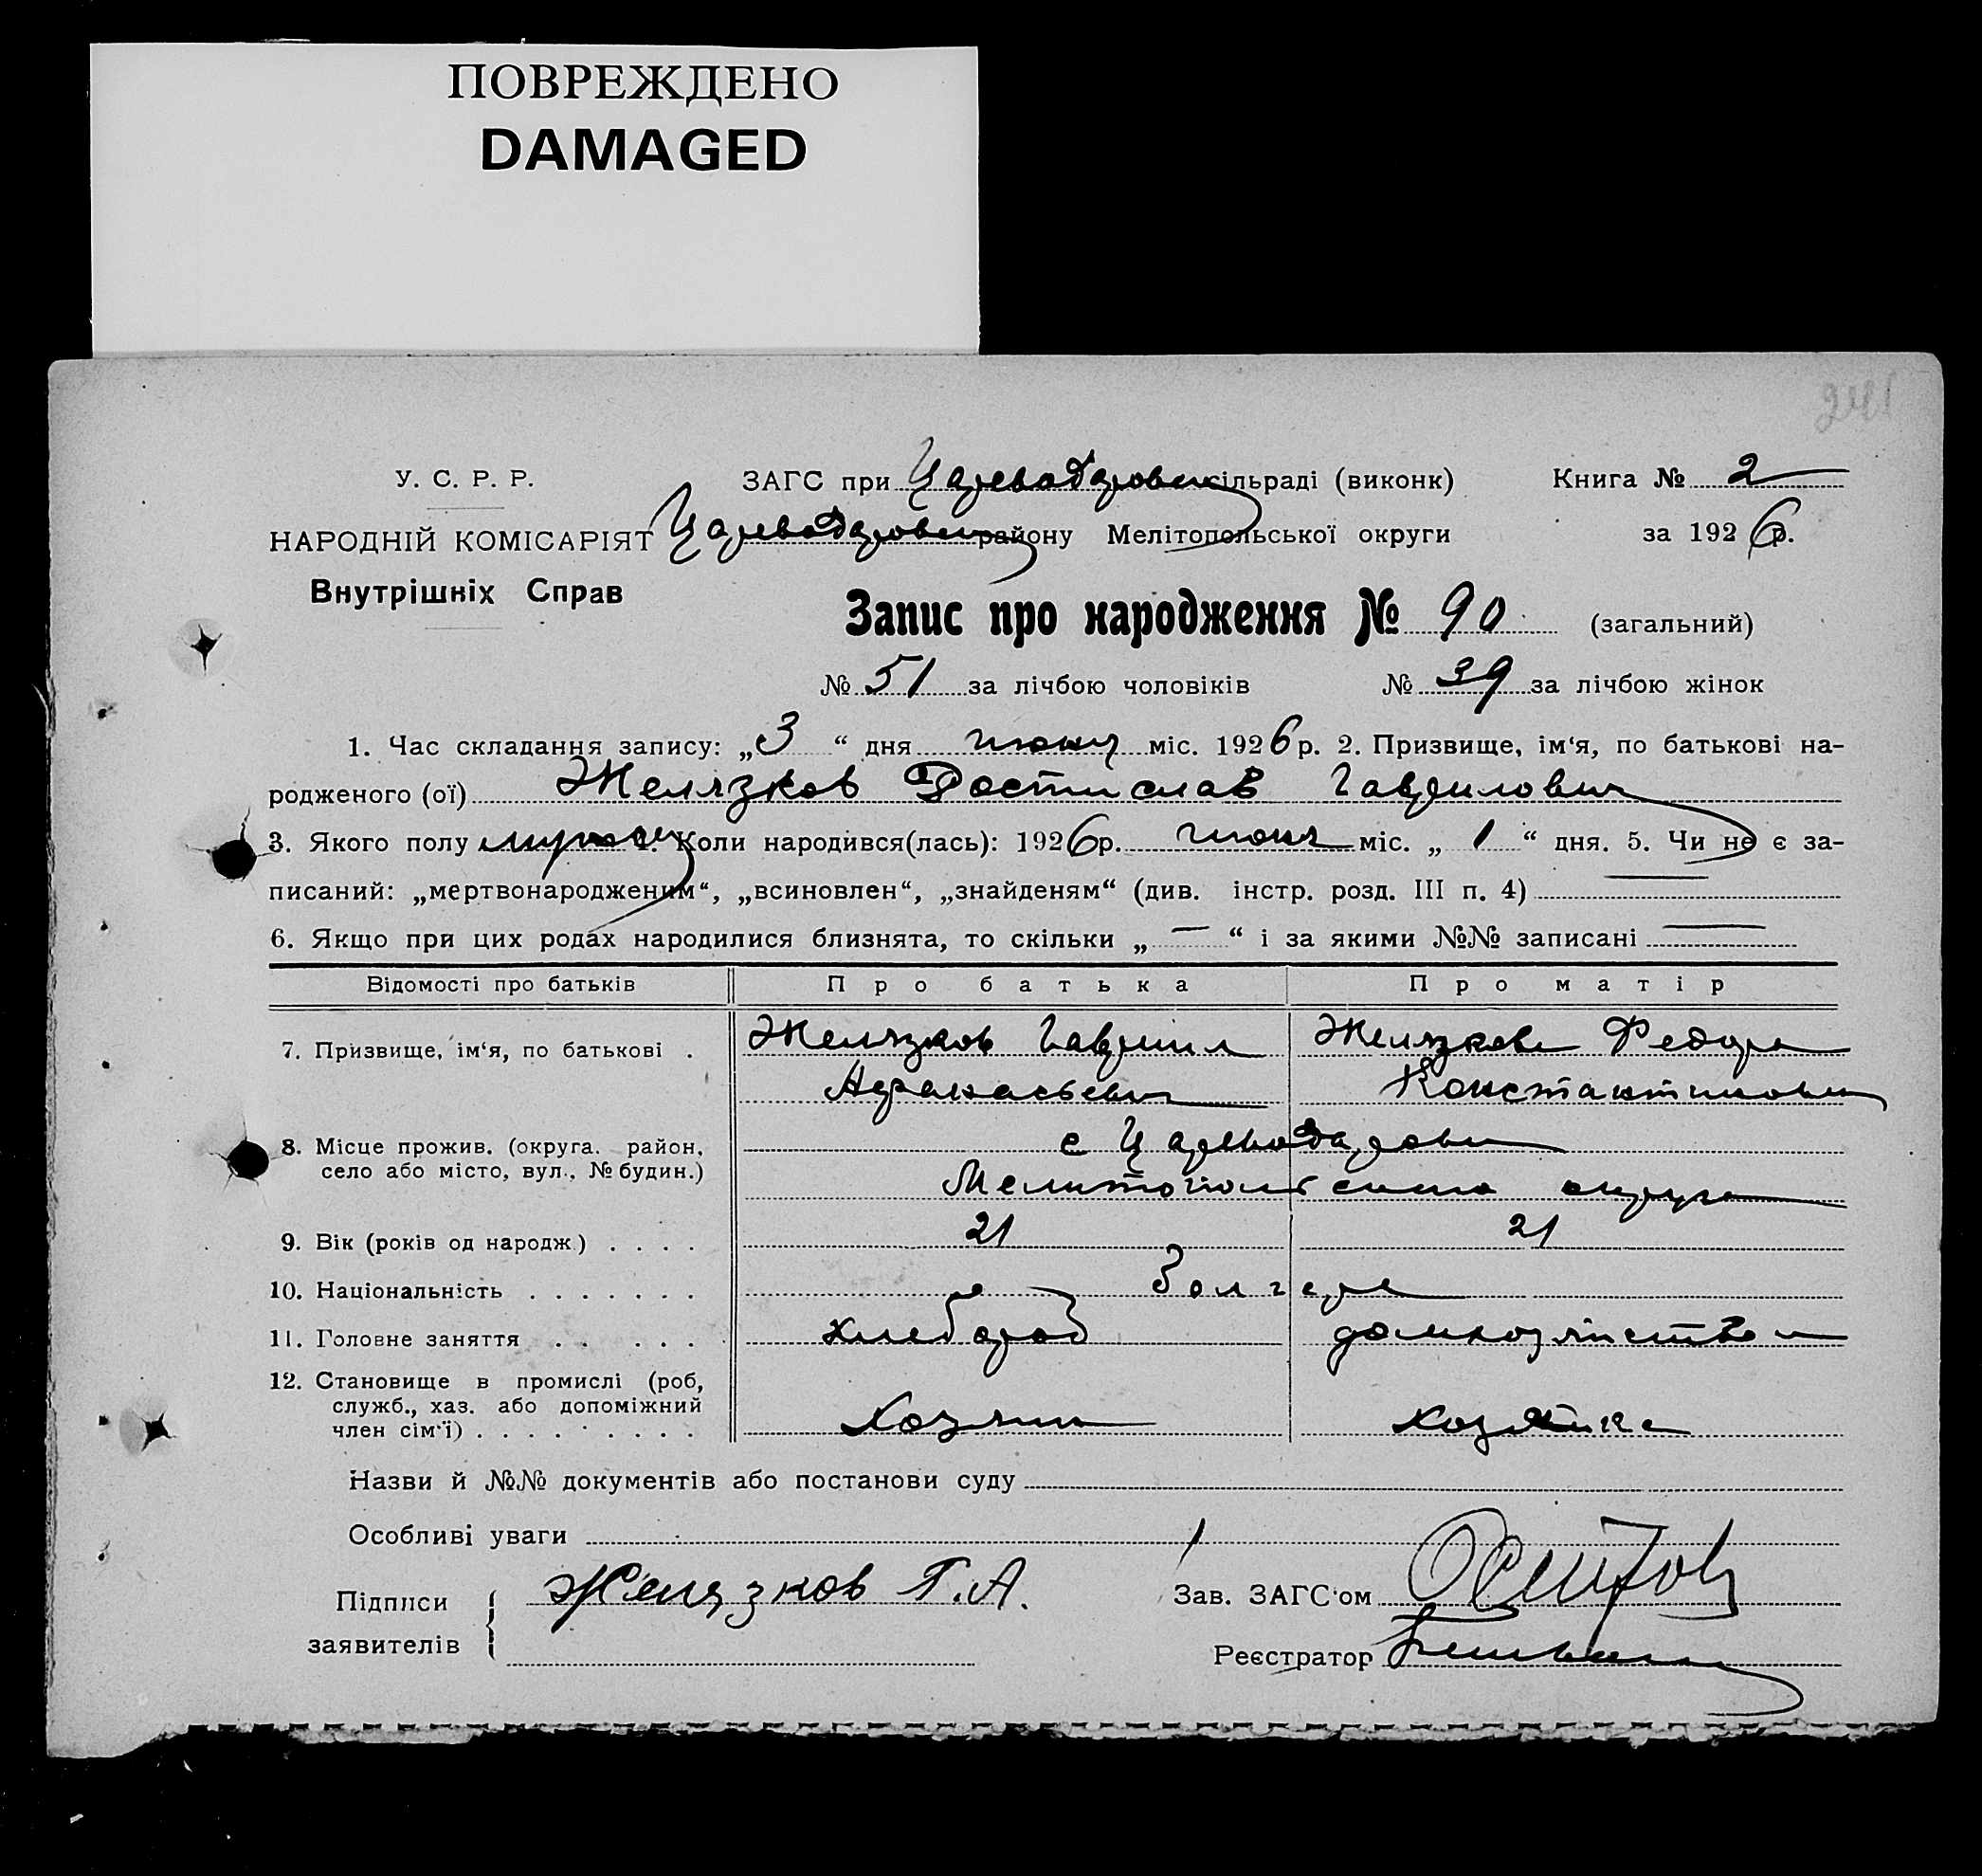 ПОВРЕЖДЕНО
DAMAGED
241
У. С. Р. Р.
НАРОДНІЙ КОМІСАРІЯТ
Внутрішніх Справ
ЗАГС при Цареводаровск сільраді (виконк)
Цареводаровск району Мелітопольської округи
Книга № 2
за 1926 р.
Запис про народження № 90 (загальний)
№ 51 за лічбою чоловіків № 39 за лічбою жінок
1. Час складання запису: „3“ дня июня міс. 1926 р. 2. Призвище, ім‘я, по батькові на-
родженого (ої) Желязков Ростислав Гаврилович
3. Якого полу мужск 4. Коли народився(лась): 1926 р. июня міс. „1“ дня. 5. Чи не є за-
писаний: „мертвонародженим“, „всиновлен“, „знайденям“ (див. інстр. розд. III п. 4) —
6. Якщо при цих родах народилися близнята, то скільки „—“ і за якими №№ записані —
Відомості про батьків Про батька Про матір
7. Призвище, ім‘я, по батькові . Желязков Гавриил Желязкова Федора
Афанасьевич Константиновна
8. Місце прожив. (округа. район, с Цареводаровка
село або місто, вул., № будин.) Мелитопольского округа
9. Вік (років од народж.) . . . . 21 21
10. Національність . . . . . . . Болгаре
11. Головне заняття . . . . . хлебороб домхозяйством
12. Становище в промислі (роб,
служб., хаз. або допоміжний
член сім‘ї) . . . . . . . . . Хозяин хозяйка
Назви й №№ документів або постанови суду
Особливі уваги
Підписи
заявителів
Желязков Г.А.
Зав. ЗАГС‘ом
Реєстратор